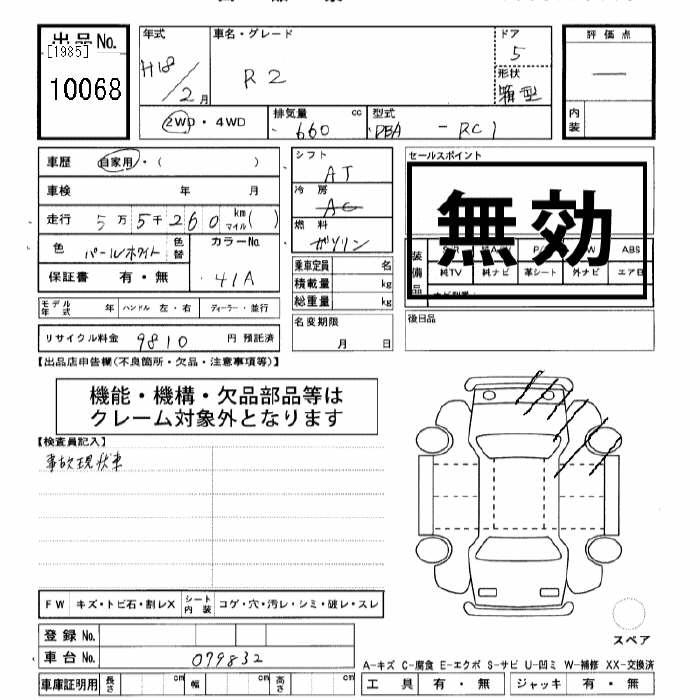 出品 No.
[1985]
10068
年式 H18/2月
車名・グレード R2
ドア 5
形状 箱型
評価点 —
内装
2WD・4WD
排気量 660 cc
型式 DBA - RC1
車歴 自家用・( )
車検 年 月
走行 5万5千260 km マイル( )
色 パールホワイト 色替
カラーNo. 41A
保証書 有・無
シフト AT
冷房 AC
燃料 ガソリン
乗車定員 名
積載量 kg
総重量 kg
セールスポイント
無効
装備品
ABS
純TV 純ナビ 革シート 外ナビ エアB
モデル年式 年 ハンドル 左・右 ディーラー・並行
リサイクル料金 9810 円 預託済
名変期限 月 日
後日品
【出品店申告欄(不良箇所・欠品・注意事項等)】
機能・機構・欠品部品等は
クレーム対象外となります
【検査員記入】
事故現状車
FW キズ・トビ石・割レX シート内装 コゲ・穴・汚レ・シミ・破レ・スレ
スペア
登録 No.
車台 No. 079832
A-キズ C-腐食 E-エクボ S-サビ U-凹ミ W-補修 XX-交換済
車庫証明用 長さ cm 幅 cm 高さ cm
工具 有・無 ジャッキ 有・無